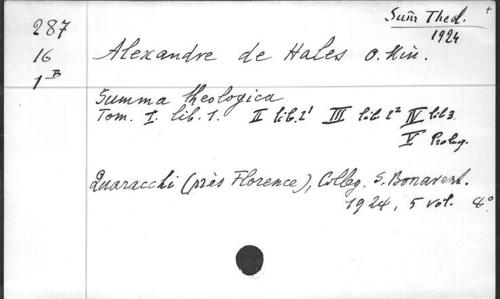 Sum̃ Theol. +
1924
287
16
1 B
Alexandre de Hales O. Min.
Summa theologica
Tom. I. lib. 1. II lib. 2¹ III lib. 2² IV lib 3
V Prolog.
Quaracchi (près Florence), Colleg. S. Bonavent.
1924, 5 vol. 4°